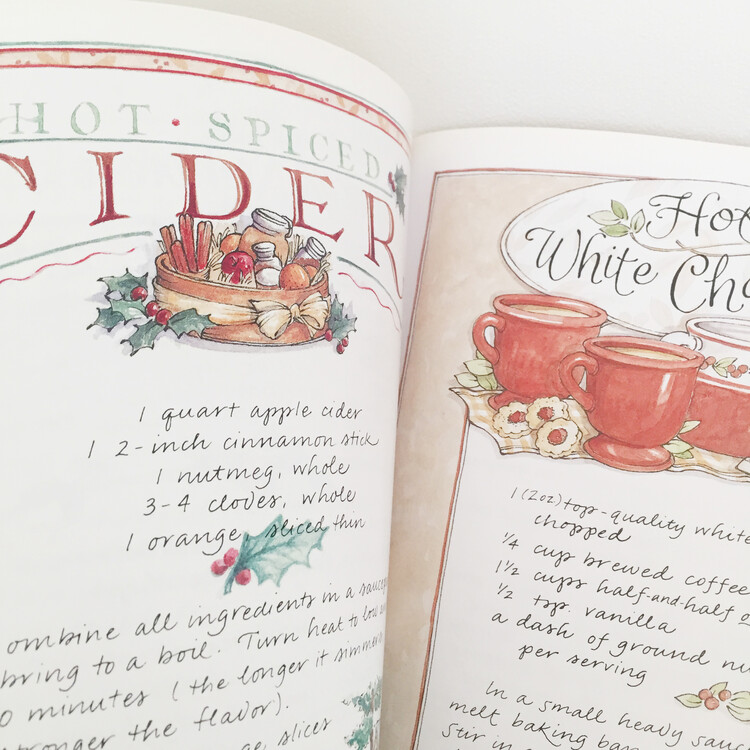 HOT • SPICED
CIDER
1 quart apple cider
1 2-inch cinnamon stick
1 nutmeg, whole
3-4 cloves, whole
1 orange, sliced thin
ombine all ingredients in a
bring to a boil. Turn heat to low
0 minutes (the longer it simmers
stronger the flavor).
slices
Hot
White
1 (2oz.) top-quality white
chopped
1/4 cup brewed coffee
1 1/2 cups half-and-half
1/2 tsp. vanilla
a dash of ground
per serving
In a small heavy
melt baking
stir in